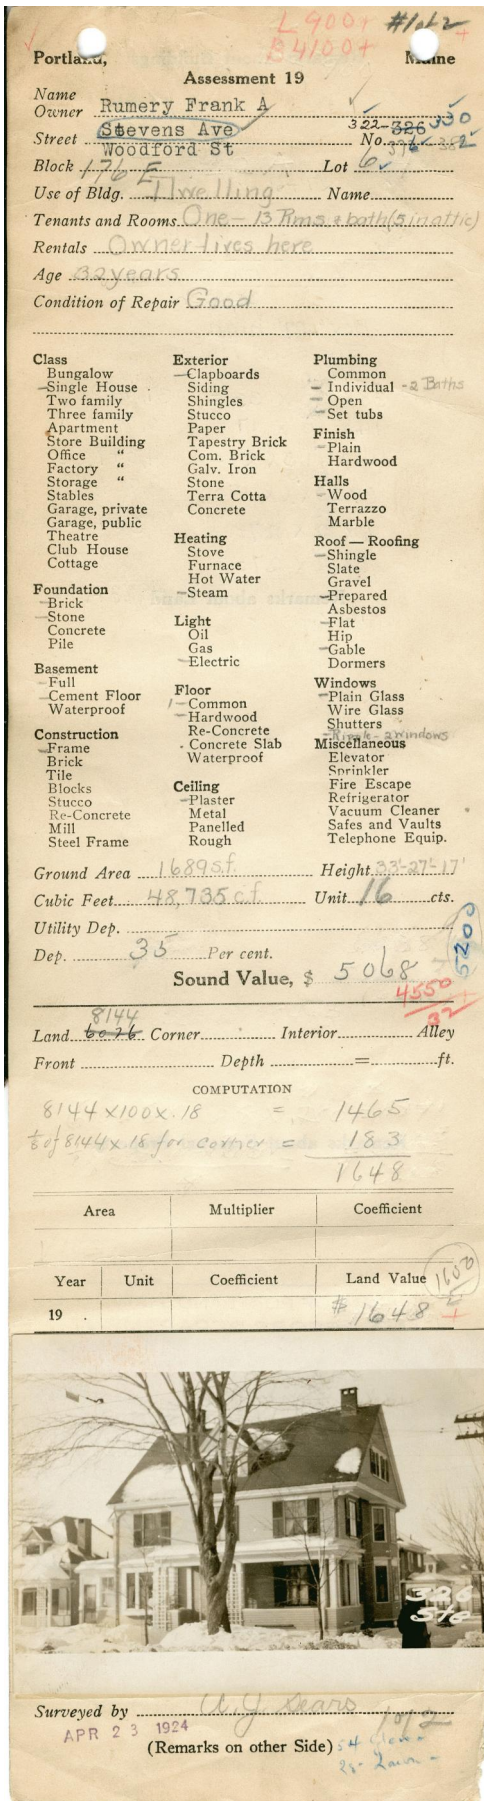 L 900+ #1 of 2
B 4100+ +
Portland, Maine
Assessment 19
Name
Owner Rumery Frank A
322-326 330
Street Stevens Ave No.
Woodford St
Block 176 E Lot 6
Use of Bldg. Dwelling Name
Tenants and Rooms One - 13 Rms & bath (5 in attic)
Rentals Owner lives here
Age 32 years
Condition of Repair Good
Class
Bungalow
Single House
Two family
Three family
Apartment
Store Building
Office "
Factory "
Storage "
Stables
Garage, private
Garage, public
Theatre
Club House
Cottage
Foundation
Brick
Stone
Concrete
Pile
Basement
Full
Cement Floor
Waterproof
Construction
Frame
Brick
Tile
Blocks
Stucco
Re-Concrete
Mill
Steel Frame
Exterior
Clapboards
Siding
Shingles
Stucco
Paper
Tapestry Brick
Com. Brick
Galv. Iron
Stone
Terra Cotta
Concrete
Heating
Stove
Furnace
Hot Water
Steam
Light
Oil
Gas
Electric
Floor
Common
Hardwood
Re-Concrete
Concrete Slab
Waterproof
Ceiling
Plaster
Metal
Panelled
Rough
Plumbing
Common
Individual - 2 Baths
Open
Set tubs
Finish
Plain
Hardwood
Halls
Wood
Terrazzo
Marble
Roof — Roofing
Shingle
Slate
Gravel
Prepared
Asbestos
Flat
Hip
Gable
Dormers
Windows
Plain Glass
Wire Glass
Shutters
Ripple - 2 windows
Miscellaneous
Elevator
Sprinkler
Fire Escape
Refrigerator
Vacuum Cleaner
Safes and Vaults
Telephone Equip.
Ground Area 1689 s.f. Height 33'-27'-17'
Cubic Feet 48,735 c.f. Unit 16 cts.
Utility Dep.
Dep. 35 Per cent. 5200
Sound Value, $ 5068
4550
32
8144
Land 6026 Corner Interior Alley
Front Depth = ft.
COMPUTATION
8144 x 100 x .18 = 1465
1/8 of 8144 x 18 for corner = 183
1648
Area Multiplier Coefficient
Year Unit Coefficient Land Value 1600
19 . $ 1648 +
326
Ste
Surveyed by A. J. Sears
APR 23 1924
(Remarks on other Side)